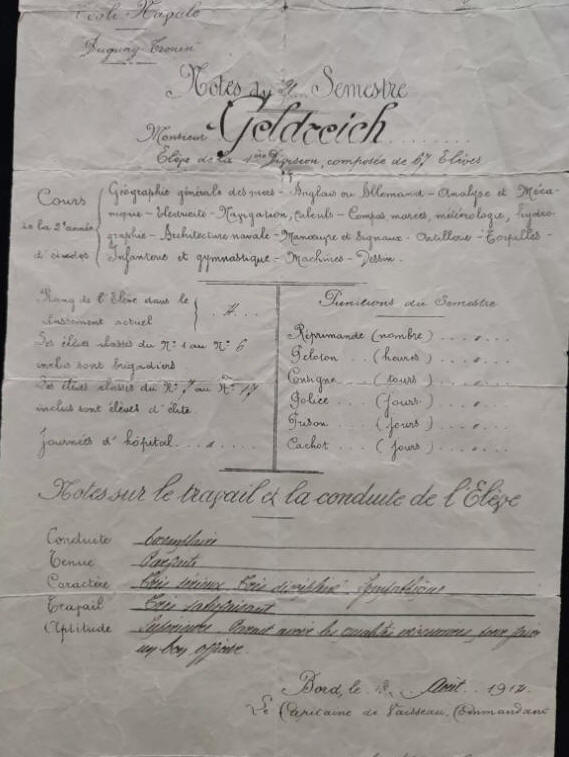 Ecole Navale
Duguay Trouin
Notes du 2e Semestre
Monsieur Geldreich
Elève de la 1ère Division, composée de 67 Elèves
Cours de la 2e année d'études
Géographie générale des mers - Anglais ou Allemand - Analyse et Méca-
nique - Electricité - Navigation, Calculs - Compas, marées, météorologie, hydro-
graphie - Architecture navale - Manœuvre et Signaux - Artillerie - Torpilles -
Infanterie et gymnastique - Machines - Dessin.
Rang de l'Elève dans le
classement actuel
Les élèves classés du N° 1 au N° 6
inclus sont brigadiers
Les élèves classés du N° 7 au N° 17
inclus sont élèves d'élite.
Journées d'hôpital .... 0 ....
Punitions du Semestre
Réprimande (nombre) .... 0 ..
Peloton ... (heures) .... 0 ..
Consigne ... (tours) .... 0 ..
Police ... (jours) .... 0 ..
Prison ... (jours) .... 0 ..
Cachot ... (jours) .... 0 ..
Notes sur le travail et la conduite de l'Elève
Conduite Exemplaire
Tenue Parfaite
Caractère Très sérieux. Très discipliné. Sympathique
Travail Très satisfaisant
Aptitude Supérieure. Promet avoir les qualités nécessaires pour faire
un bon officier.
Bord, le Août 1912.
Le Capitaine de Vaisseau, Commandant